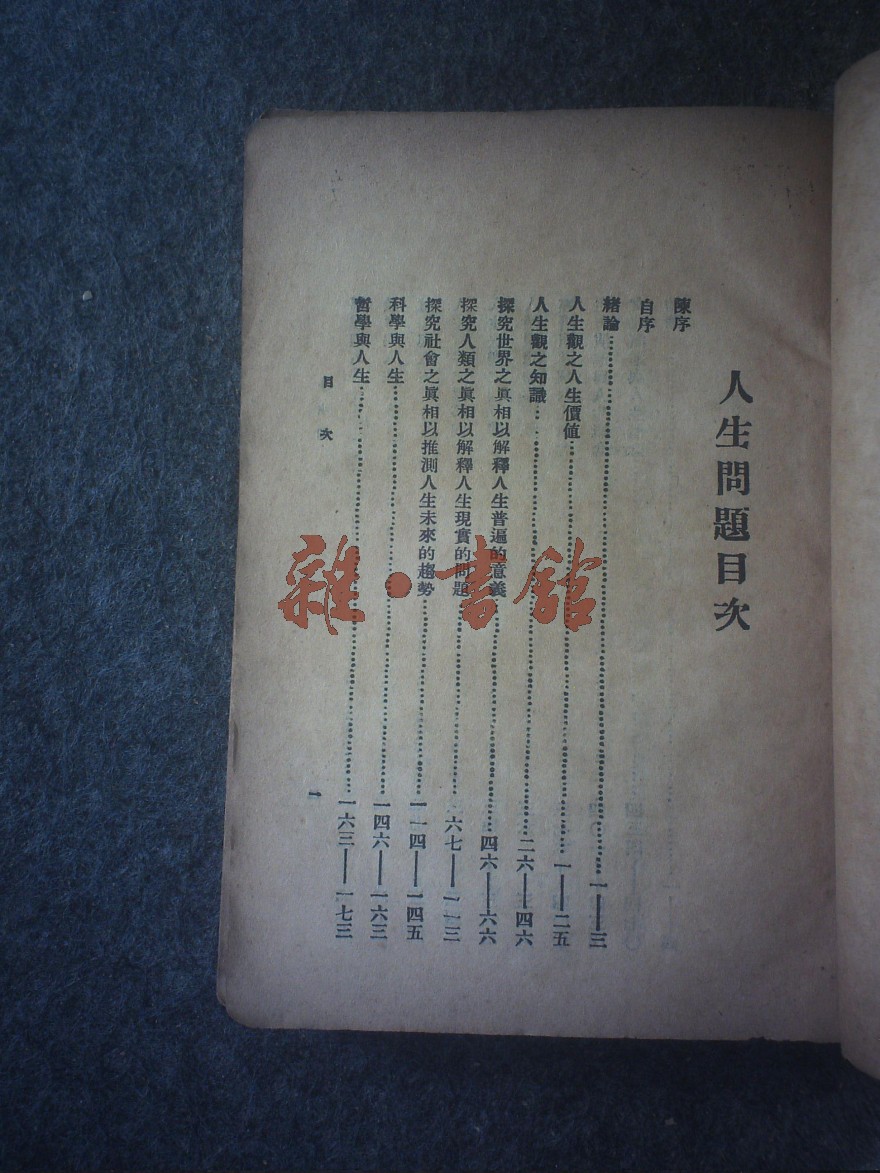 人生問題目次
陳序
自序
緒論……一——三
人生觀之人生價値……一——二五
人生觀之知識……二六——四六
探究世界之眞相以解釋人生普遍的意義……四六——六六
探究人類之眞相以解釋人生現實的問題……六七——一一三
探究社會之眞相以推測人生未來的趨勢……一一四——一四五
科學與人生……一四六——一六三
哲學與人生……一六三——一七三
目次
一
雜·書館